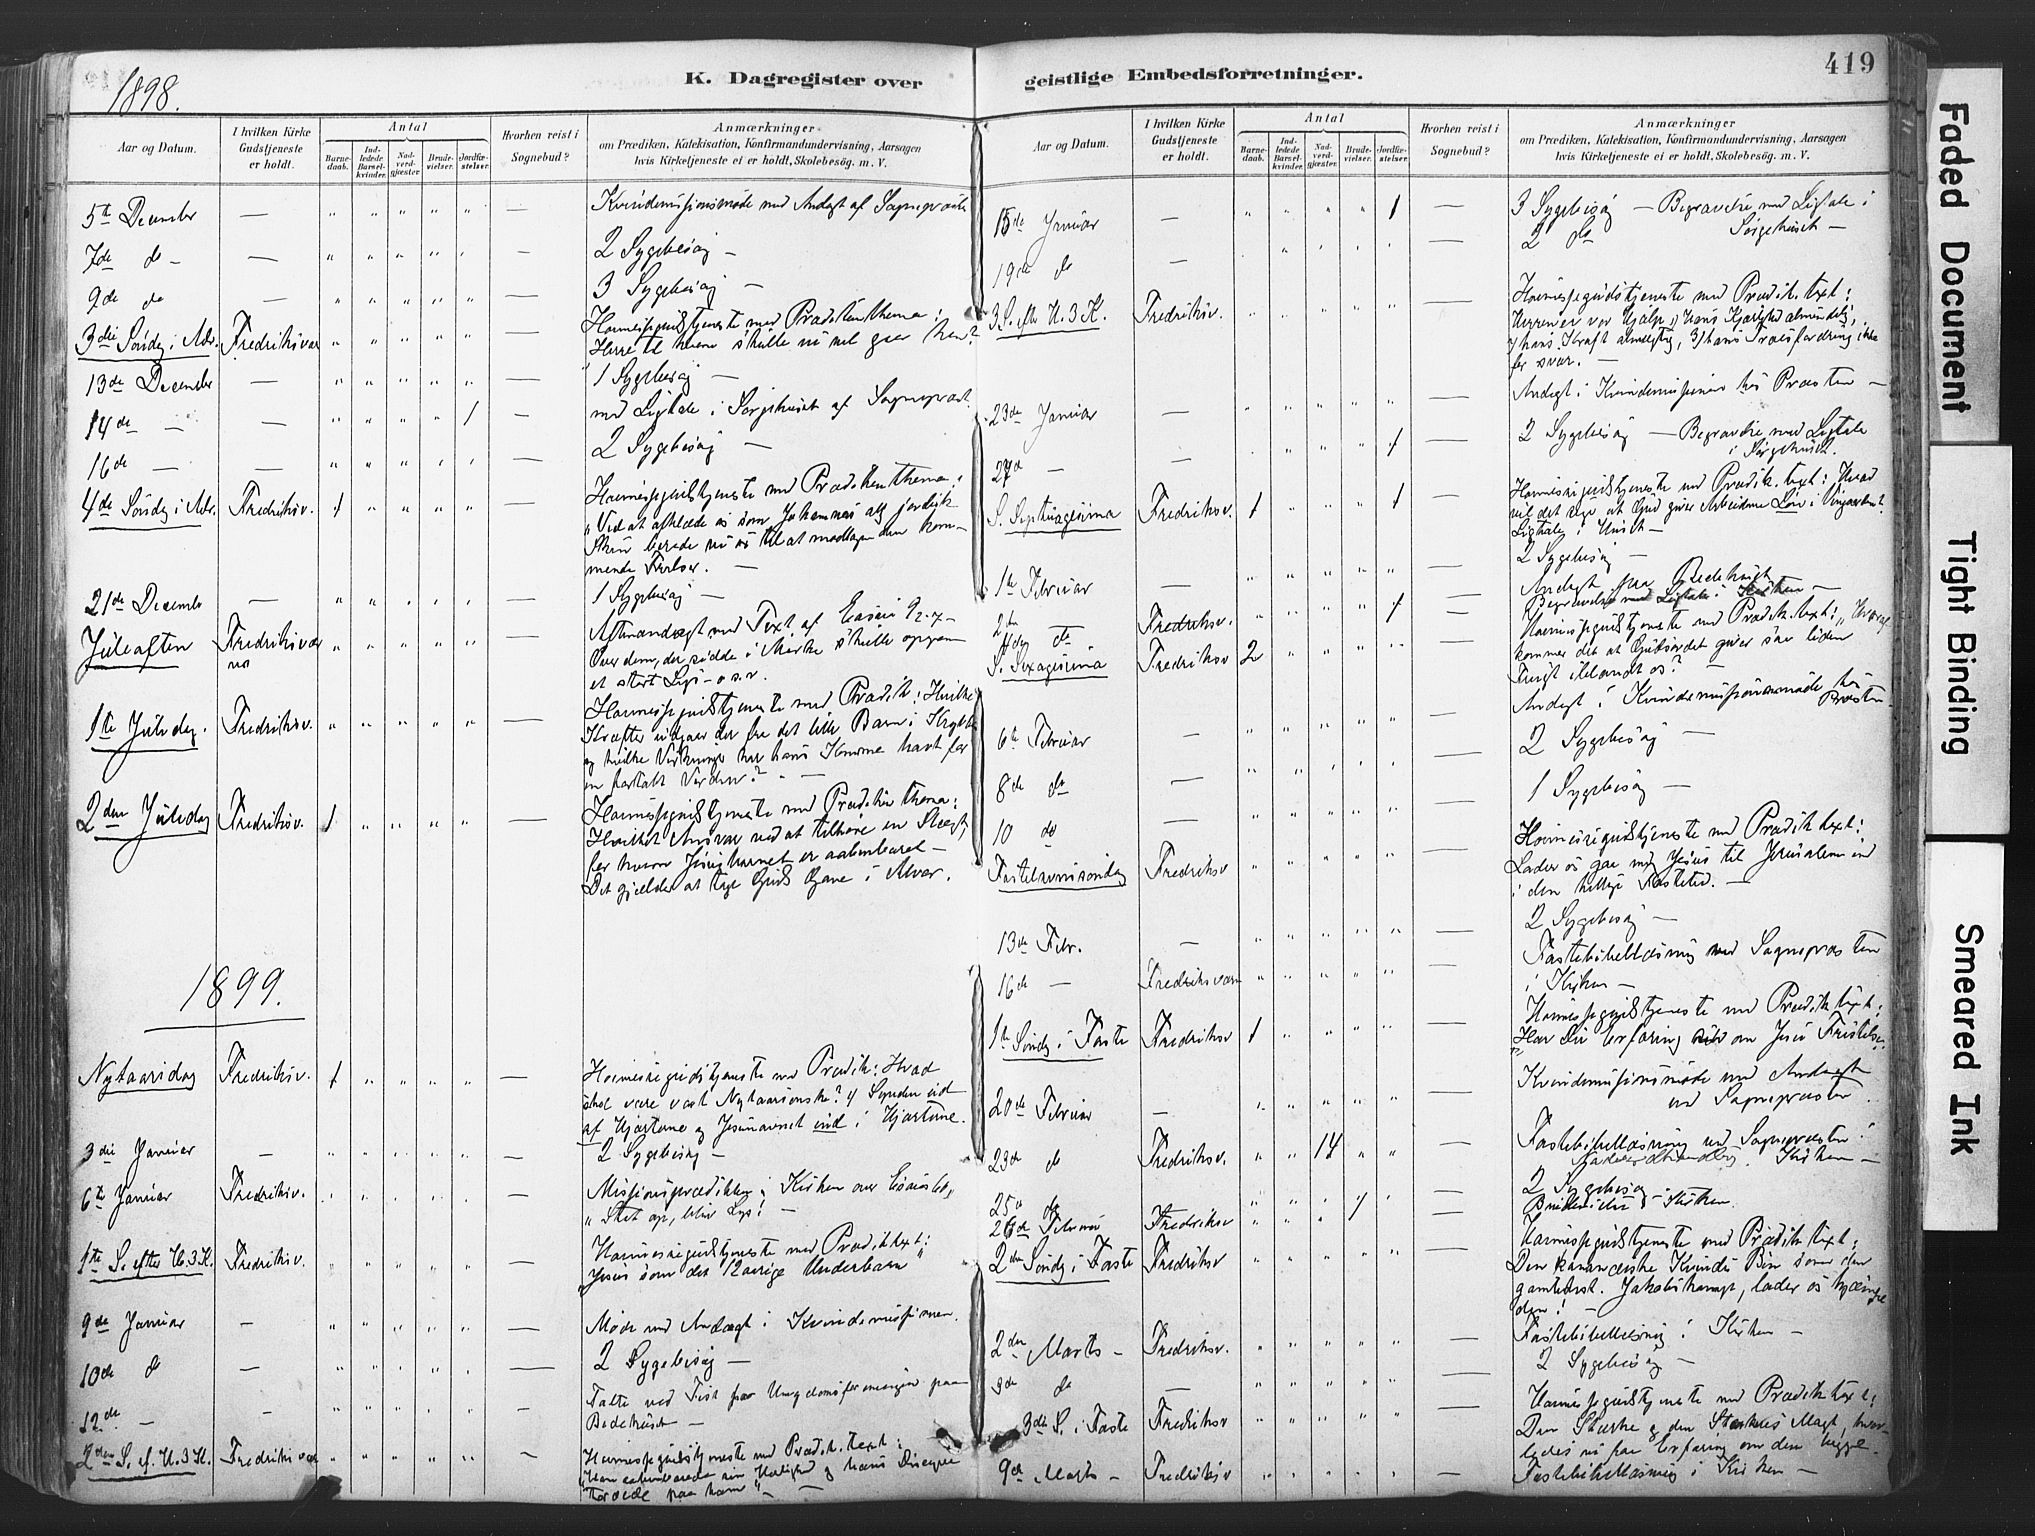 1898.
K. Dagregister over
Aar og Datum.
I hvilken Kirke Gudstjeneste er holdt.
Antal
Barnedaab.
Indledede Barselkvinder.
Nadverdgjæster.
Brudevielser.
Jordfæstelser.
Hvorhen reist i Sognebud?
Anmærkninger
om Prædiken, Katekisation, Konfirmandundervisning, Aarsagen
hvis Kirketjeneste ei er holdt, Skolebesøg. m. V.
5te December — Kvindemissionsmøde med Andagt af Sognepræst
7de do — 2 Sygebesøg —
9de do — 3 Sygebesøg —
3die Søndag i Adv. Fredriksvær Høimessegudstjeneste med Prædiken thema:
Herre til hvem skulle vi vel gaa hen?
13de December — 1 Sygebesøg —
14de — — 1 — med Ligtale i Sørgehuset af Sognepræst
16de — — 2 Sygebesøg —
4de Søndag i Adv. Fredriksv. 1 Høimessegudstjeneste med Prædiken thema:
"Ved at afklæde os som Johannes alt jordisk
Skin berede vi os til at modtage den kom-
mende Frelser. —
21de Decemb — 1 Sygebesøg —
Juleaften Fredriksvær Aftenandagt med Text af Esaias 9 2-7 —
Over dem, der sidde i Mørke skulle opgaa
et stort Lys - o.s.v.
1te Juledag. Fredriksv. Høimessegudstjeneste med Prædik: Hvilke
Kræfter udgaar der fra det lille Barn i Krybben
og hvilke Virkninger har hans Komme havt for
en fortabt Verden? —
2den Juledag Fredriksv. 1 Høimessegudstjeneste med Prædiken thema:
Hvilket Ansvar ved at tilhøre en Slægt,
for hvem Jesusbarnet er aabenbaret —
Det gjælder at tage Guds Gave i Alvor.
1899.
Nytaarsdag Fredriksv. 1 Høimessegudstjeneste med Prædik: Hvad
skal være vort Nytaarsønske? Synden ud
af Hjærterne og Jesunavnet ind i Hjærterne.
3die Januar — 2 Sygebesøg —
6te Januar Fredriksv. Missionsprædiken i Kirken over
"Staa op, bliv Lys! —
1te S. efter H.3.K. Fredriksv. Høimessegudstjeneste med Prædik text:
"Jesus som det 12 aarige Underbarn"
9de Januar — Møde med Andagt i Kvindemissionen.
10de do — 2 Sygebesøg —
12de — — Talte ved Fest for Ungdomsforeningen paa
Bedehuset —
2den S. ef. H.3.K. Fredriksvær Høimessegudstjeneste med Prædik. text:
"Han aabenbarede sin Herlighed og hans Disciple
troede paa ham" —
geistlige Embedsforretninger.
419
Aar og Datum.
I hvilken Kirke Gudstjeneste er holdt.
Antal
Barnedaab.
Indledede Barselkvinder.
Nadverdgjæster.
Brudevielser.
Jordfæstelser.
Hvorhen reist i Sognebud?
Anmærkninger
om Prædiken, Katekisation, Konfirmandundervisning, Aarsagen
hvis Kirketjeneste ei er holdt, Skolebesøg. m. V.
15de Januar — 1 — 3 Sygebesøg — Begravelse med Ligtale i
Sørgehuset —
19de do — 2 do
3 S. eft. H.3 K. Fredriksv. Høimessegudstjeneste med Prædik. text:
Herren er vor Hjælp, 1/ hans Kjærlighed almindelig,
2/ hans Kraft almægtig, 3/ hans Troesfordring ikke
for svær. —
23de Januar — Andagt i Kvindemissionen hos Præsten —
27de — — 1 — 2 Sygebesøg — Begravelse med Ligtale
i Sørgehuset.
S. Septuagesima Fredriksv. 1 1 Høimessegudstjeneste med Prædik. text: Hvad
vil det sige at Gud giver Arbeiderne Løn i Vingaarden?
Ligtale i Huset —
1te Februar — 2 Sygebesøg —
Andagt paa Bedehuset
2den do Fredriksv. 1 Begravelse med Ligtale i Kirken —
S. Sexagesima Fredriksv 2 Høimessegudstjeneste med Prædik text: "Hvoraf
kommer det at Gudsordet giver saa liden
Frugt iblandt os? —
6te Februar — Andagt i Kvindemissionsmøde hos
Præsten —
8de do — 2 Sygebesøg —
10 do — 1 Sygebesøg —
Fastelavnssøndag Fredriksv Høimessegudstjeneste med Prædik text:
Lader os gaa med Jesus til Jerusalem ind
i den hellige Fastetid. —
13de Febr. — 2 Sygebesøg —
16de — Fredriksværn Fastebibellæsning ved Sognepræsten
i Kirken —
1te Søndag i Faste Fredriksv 1 Høimessegudstjeneste med Prædik text:
"Har Du Erfaring om Jesu Fristelse"
20de Februar — Kvindemissionsmøde med Andagt
ved Sognepræsten.
23de do Fredriksv. 14 Fastebibellæsning ved Sognepræsten i
Kirken —
25de do 2 Sygebesøg —
26de Februar Fredriksv 1 Brudevielse i Kirken.
2den Søndag i Faste Fredriksv Høimessegudstjeneste med Prædik text:
Den kananæiske Kvindes Bøn som den
gamle Jakobskamp, lader os kjæmpe
den! —
2den Marts — Fredriksv. Fastebibellæsning i Kirken —
3de do — 2 Sygebesøg —
3die S. i Faste Fredriksv Høimessegudstjeneste med Prædik text:
Den Stærke og den Stærkeres Magt, hvor-
ledes vi faar Erfaring om dem begge.
9de Marts — Fredriksv Fastebibellæsning i Kirken —
Faded Document
Tight Binding
Smeared Ink